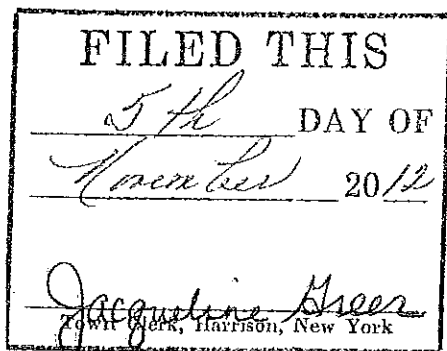 FILED THIS
5th DAY OF
November 2012
Jacqueline Greer
Town Clerk, Harrison, New York